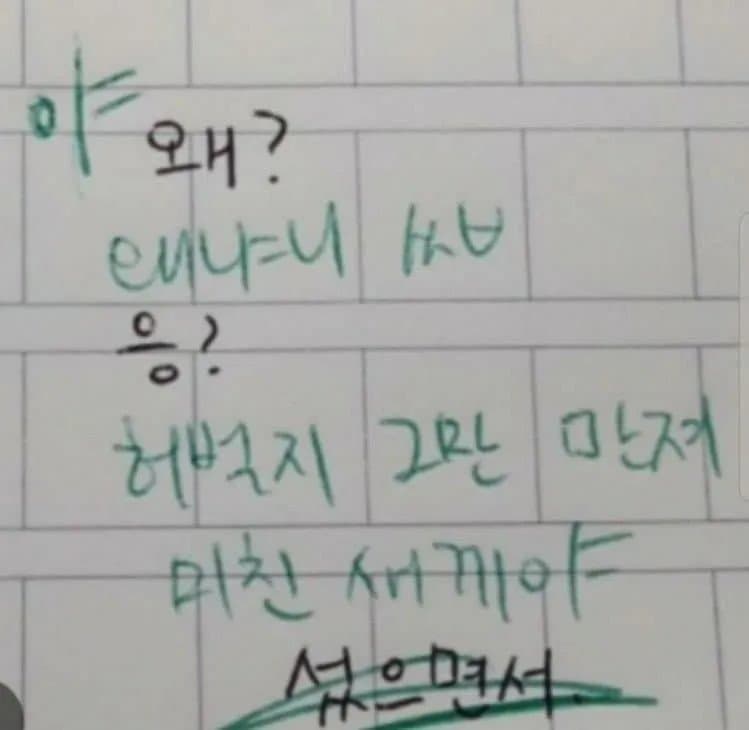 야
왜?
때냐니 씨ㅂ
응?
허벅지 그만 만져
미친 새끼야
섰으면서.